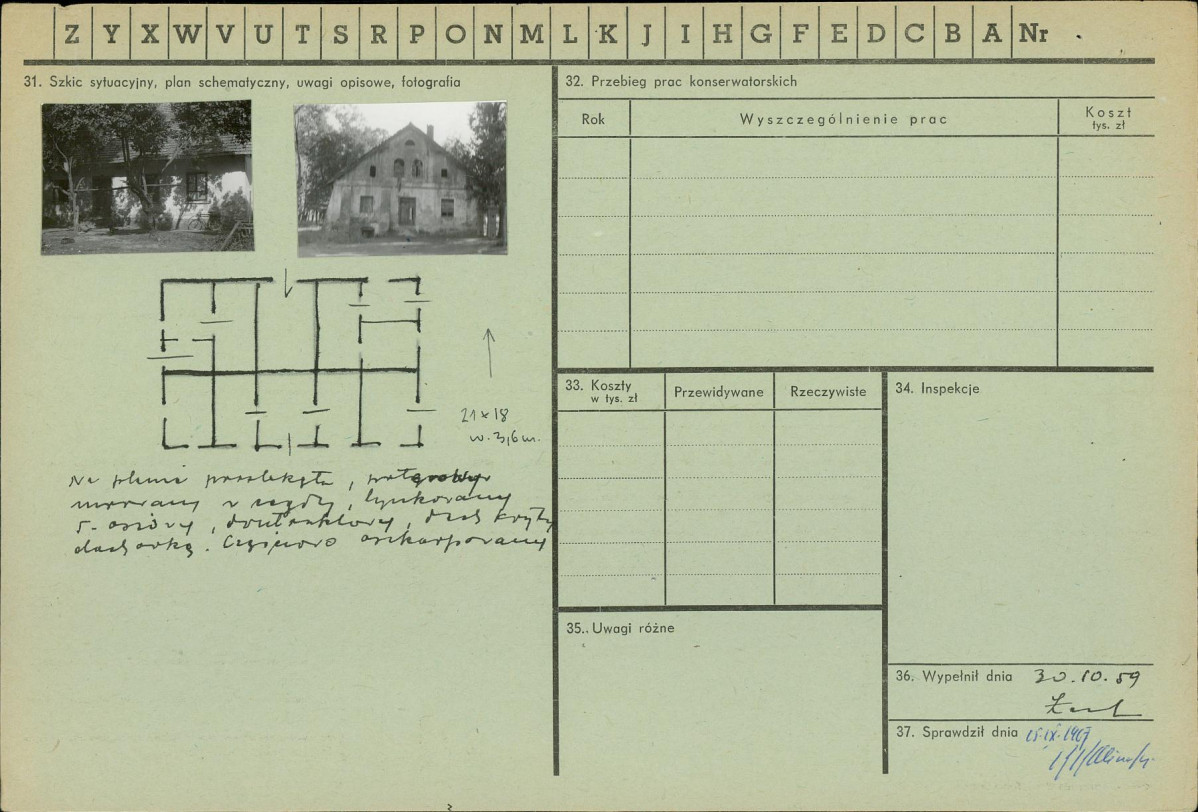 Z Y X W V U T S R P O N M L K J I H G F E D C B A Nr
31. Szkic sytuacyjny, plan schematyczny, uwagi opisowe, fotografia
21 x 18
w. 3,6 m.
Na planie prostokąta, parterowy
murowany z cegły, tynkowany
5-osiowy, dwutraktowy, dach kryty
dachówką. Częściowo oszkarpowany
32. Przebieg prac konserwatorskich
Rok
Wyszczególnienie prac
Koszt
tys. zł
33. Koszty
w tys. zł
Przewidywane
Rzeczywiste
34. Inspekcje
35. Uwagi różne
36. Wypełnił dnia 30.10.59
37. Sprawdził dnia